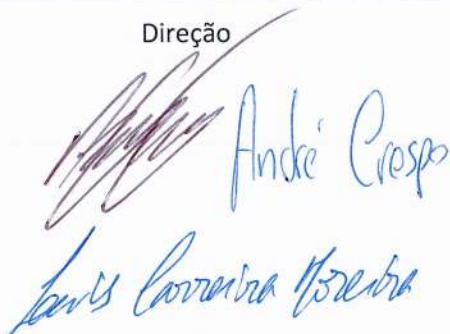 Direção
André Crespo
Correira Moreira